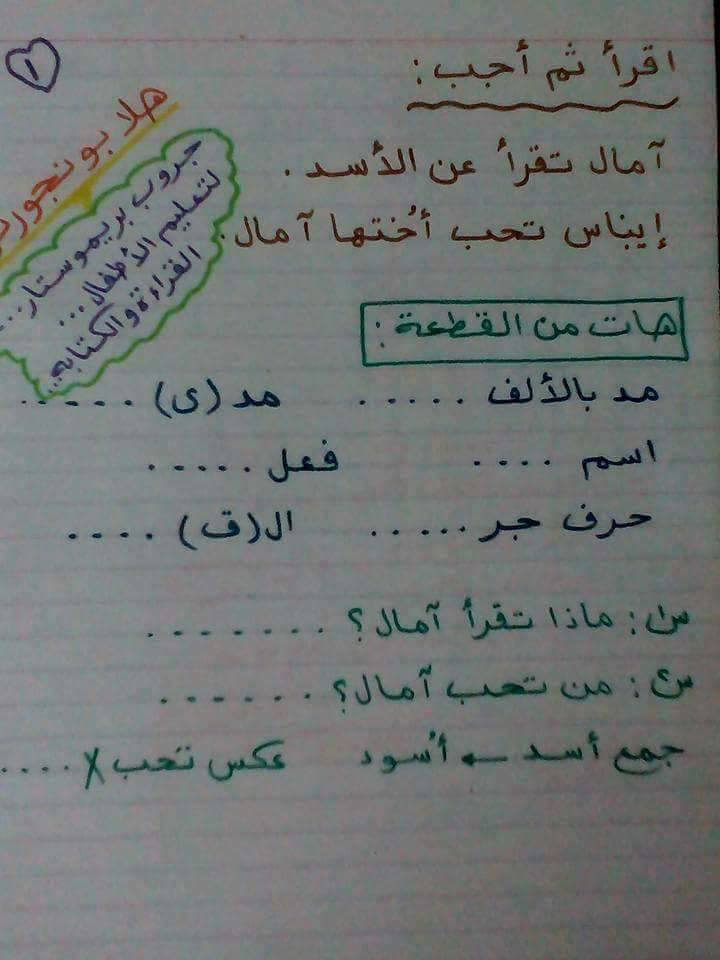 ١
اقرأ ثم أجب:
آمال تقرأ عن الأسد.
إيناس تحب أُختها آمال.
هلا بونجور
جروب بريموستار...
لتعليم الأطفال...
القراءة والكتابة..
هات من القطعة:
مد بالألف ...... مد (ى) ......
اسم .... فعل .....
حرف جر ...... ال(ق) ....
س١: ماذا تقرأ آمال؟ ........
س٢: من تحب آمال؟ .......
جمع أسد ← أُسود عكس تحب X ....